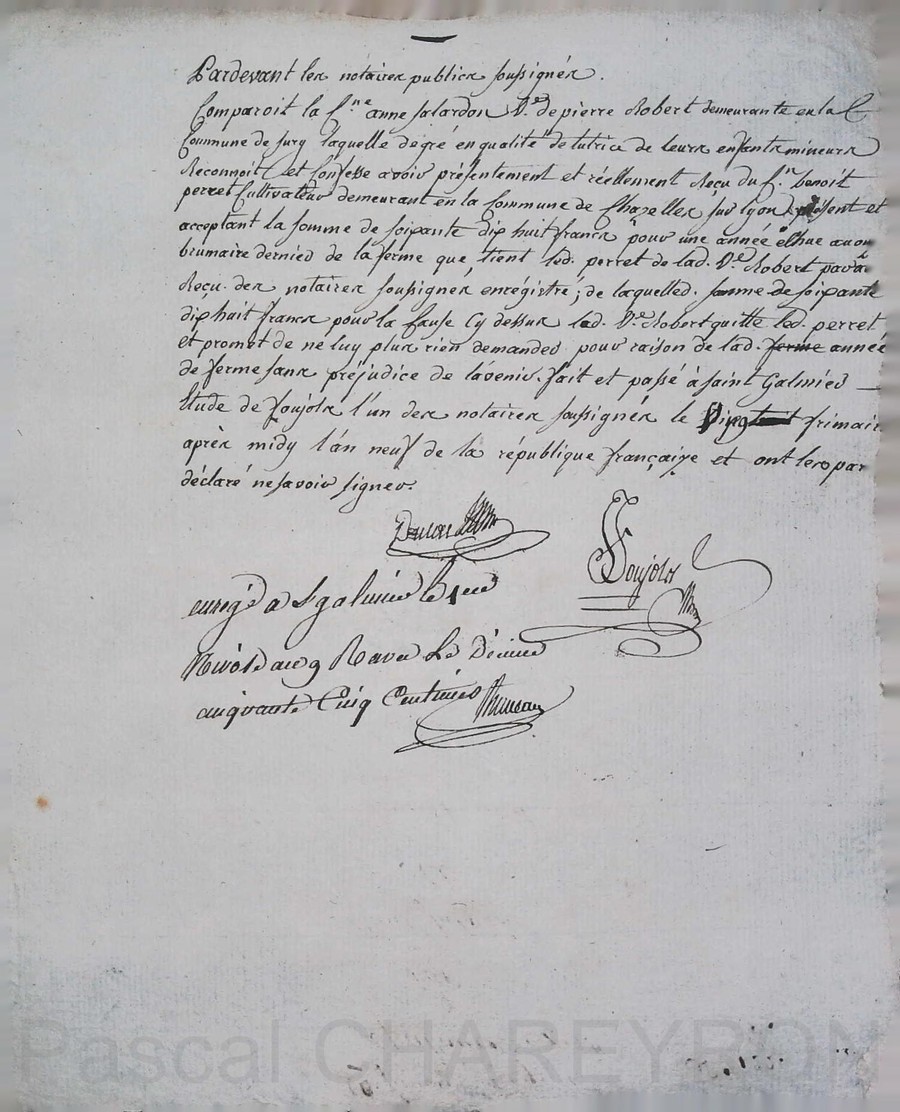 Pardevant les notaires publics soussignés.
Comparoit la C.ne anne jalardon V.e de pierre Robert demeurante en la
Commune de sury laquelle dégré en qualité de tutrice de leurs enfants mineurs
Reconnoit et Confesse avoir présentement et réellement Reçu du C.n benoit
perret Cultivateur demeurant en la Commune de Chazelles sur lyon présent et
acceptant la somme de soixante dix huit francs pour une année échue au onze
brumaire dernier de la ferme que tient led. perret de lad. V.e Robert par
Reçu des notaires soussignés enrégistré; de laquelle d. somme de soixante
dix huit francs pour la Cause Cy dessus lad. V.e Robert quitte led. perret
et promet de ne luy plus rien demander pour raison de lad. ferme année
de ferme sans préjudice de lavenir. fait et passé à saint Galmier
Etude de Soujols l'un des notaires soussignés le frimaire
après midy l'an neuf de la république française et ont les par
déclaré ne savoir signer.
Soujols
enregé a St galmier le
Nivôse an 9 Recu
cinquante Cinq Centimes
Pascal CHAREYRON